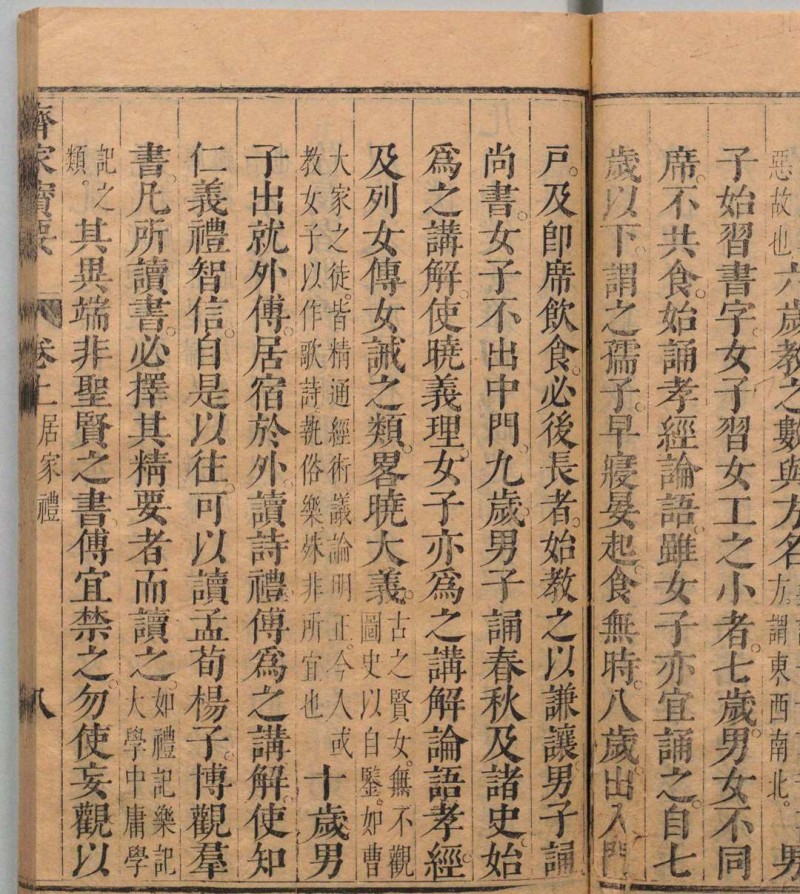 惡故也。六歲教之數與方名方謂東西南北。男
子始習書字。女子習女工之小者。七歲。男女不同
席。不共食。始誦孝經論語。雖女子亦宜誦之。自七
歲以下。謂之孺子。早寢晏起。食無時。八歲。出入門
戶。及卽席飲食。必後長者。始教之以謙讓。男子誦
尚書。女子不出中門。九歲。男子誦春秋及諸史。始
爲之講解。使曉義理。女子亦爲之講解論語孝經
及列女傳女誡之類。畧曉大義。古之賢女。無不觀圖史以自鑒。如曹
大家之徒。皆精通經術議論明正。今人或教女子以作歌詩執俗樂殊非所宜也十歲男
子出就外傅。居宿於外。讀詩禮。傅爲之講解。使知
仁義禮智信。自是以往。可以讀孟荀楊子。博觀羣
書。凡所讀書。必擇其精要者而讀之。如禮記樂記大學中庸學
記之類。其異端非聖賢之書傅宜禁之。勿使妄觀以
齊家寶要 卷上 居家禮 八